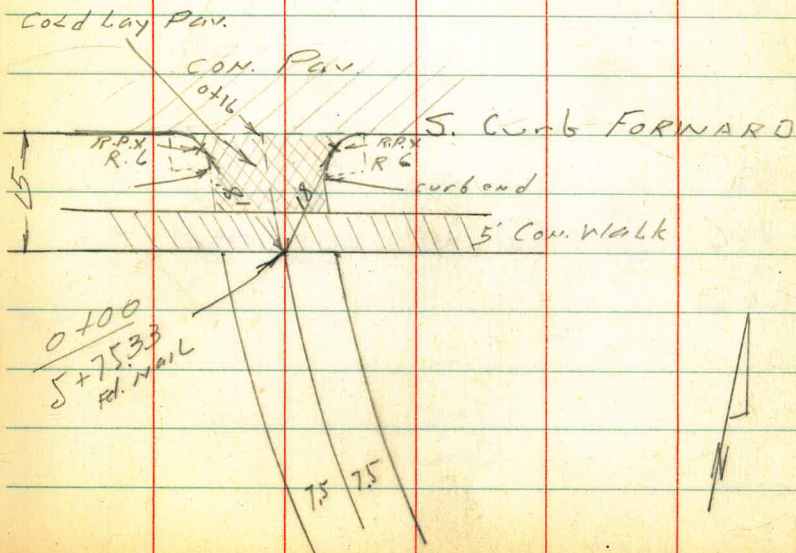 Cold Lay Pav.
Con. Pav.
0+16
S. Curb FORWARD
R.P.X
R. 6
R.P.X
R 6
curb end
15
18
18
5' Con. Walk
0+00
5+75.33
Fd. Nail
7.5
7.5
N